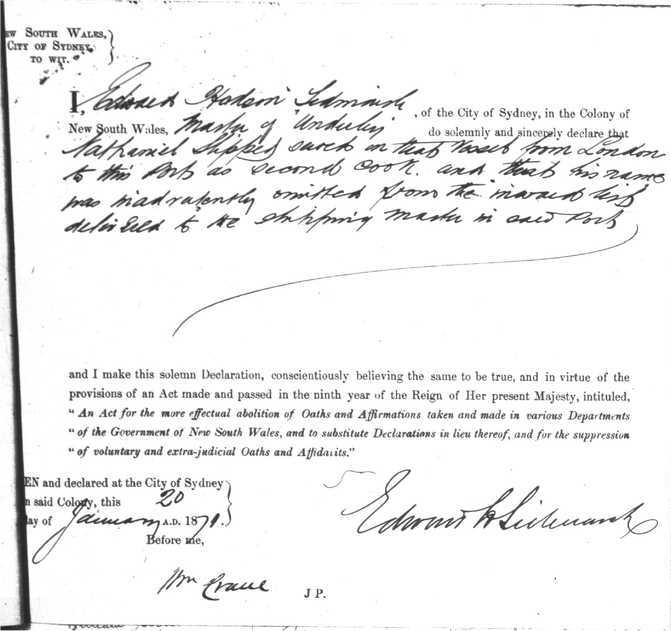 EW SOUTH WALES,
CITY OF SYDNEY,
TO WIT.
I, Edward Hudson, of the City of Sydney, in the Colony of
New South Wales, Master of "Underley" do solemnly and sincerely declare that
Nathaniel served in that vessel from London
to this Port as second cook. and that his name
was inadvertently omitted from the inward list
delivered to the shipping master in said Port
and I make this solemn Declaration, conscientiously believing the same to be true, and in virtue of the
provisions of an Act made and passed in the ninth year of the Reign of Her present Majesty, intituled,
"An Act for the more effectual abolition of Oaths and Affirmations taken and made in various Departments
"of the Government of New South Wales, and to substitute Declarations in lieu thereof, and for the suppression
"of voluntary and extra-judicial Oaths and Affidavits."
EN and declared at the City of Sydney
n said Colony, this 20
day of January A.D. 1871.
Before me,
Edward H
Wm Crane J P.